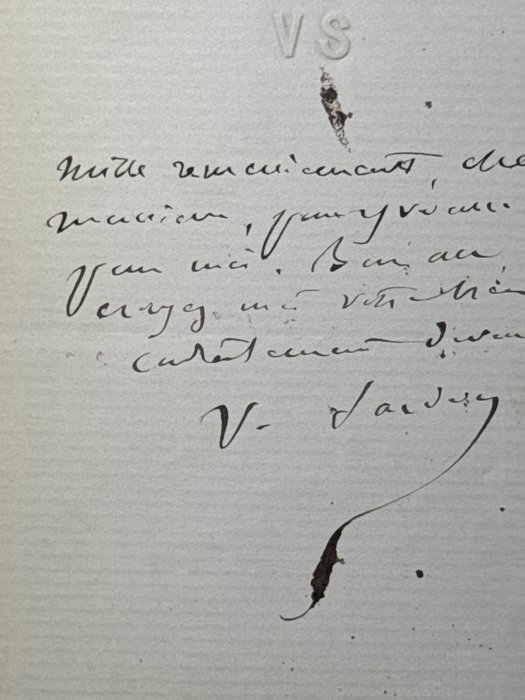 VS
Mille remerciements, che
monsieur, j'
pour moi. Bon an,
croyez moi votre bien
cordialement dévou
V. Sardou